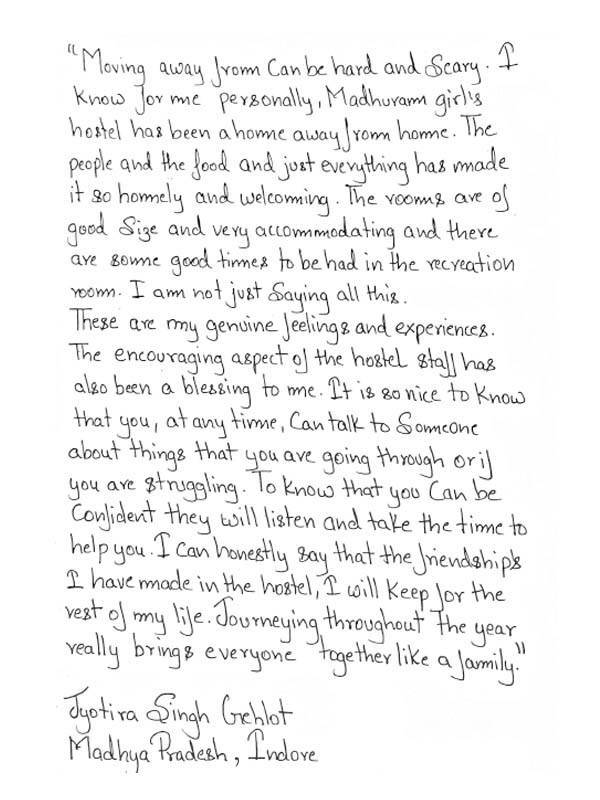 "Moving away from Can be hard and Scary. I
Know for me personally, Madhuram girl's
hostel has been a home away from home. The
people and the food and just everything has made
it so homely and welcoming. The rooms are of
good Size and very accommodating and there
are some good times to be had in the recreation
room. I am not just Saying all this.
These are my genuine feelings and experiences.
The encouraging aspect of the hostel staff has
also been a blessing to me. It is so nice to Know
that you, at any time, Can talk to Someone
about things that you are going through or if
you are struggling. To Know that you Can be
Confident they will listen and take the time to
help you. I Can honestly say that the friendships
I have made in the hostel, I will Keep for the
rest of my life. Journeying throughout the year
really brings everyone together like a family."
Jyotira Singh Gehlot
Madhya Pradesh, Indore